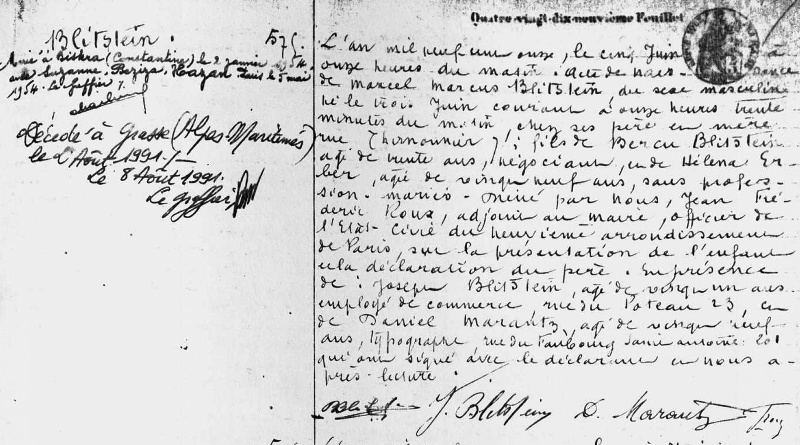 Quatre-vingt-dix-neuvième Feuillet
Blitstein.
575.
Marié à Biskra (Constantine) le 2 janvier 1954
avec Suzanne, Beziza, Hazan Paris le 5 mai
1954. Le Greffier
Décédé à Grasse (Alpes-Maritimes)
le 2 Août 1991./-
Le 8 Août 1991.
Le Greffier
L'an mil neuf cent onze, le cinq Juin
onze heures du matin. Acte de nais-sance
de Marcel Marcus Blitstein, du sexe masculin
né le trois Juin courant à onze heures trente
minutes du matin, chez ses père et mère
rue Thimonnier 7; fils de Bercu Blitstein
agé de trente ans, négociant, et de Hélèna Er-
ber, agée de vingt neuf ans, sans profes-
sion - mariés - Dressé par nous, Jean Fré-
deric Roux, adjoint au maire, officier de
l'Etat-civil du neuvième arrondissement
de Paris, sur la présentation de l'enfant
et la déclaration du père. En présence
de: Joseph Blitstein, agé de vingt un ans
employé de commerce rue du Poteau 23, et
de Daniel Marantz, agé de vingt neuf
ans, typographe, rue du Faubourg Saint Antoine 201
qui ont signé avec le déclarant et nous a-
près lecture.
J. Blitstein D. Marantz